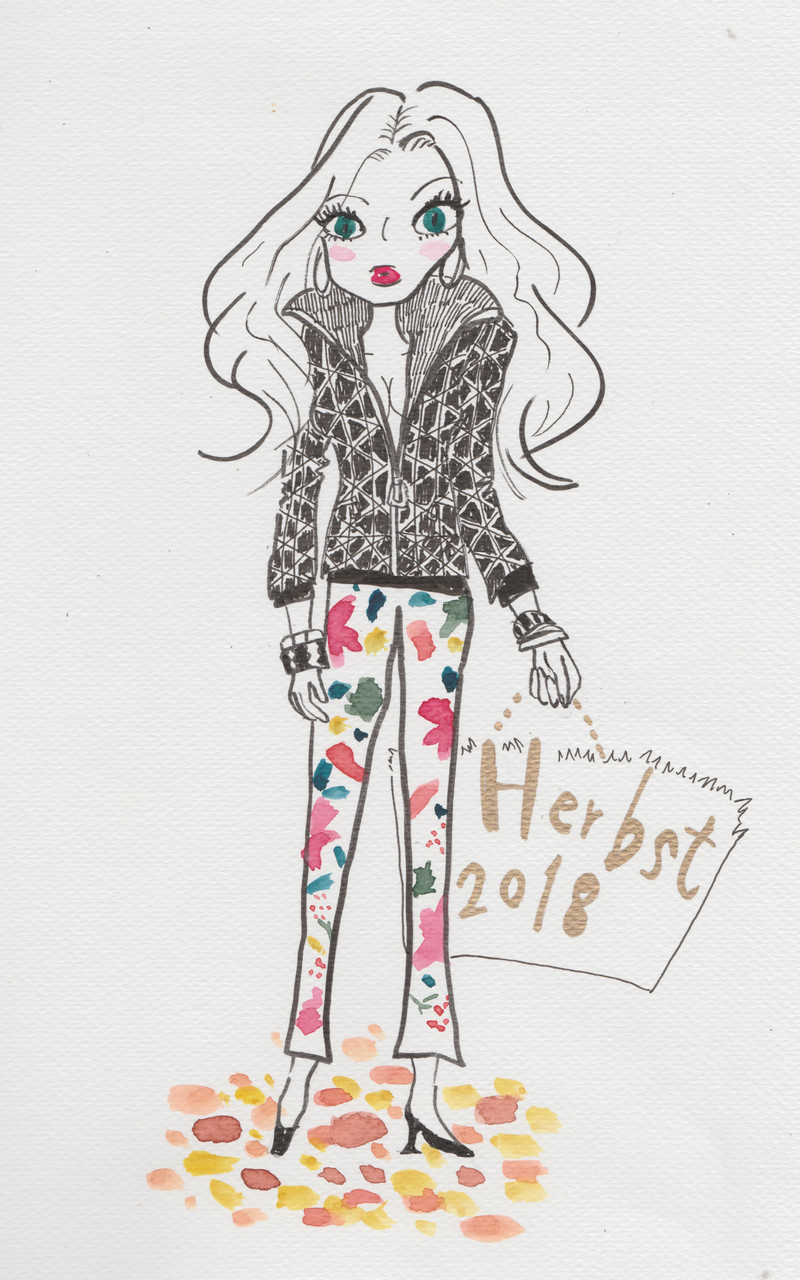 Herbst
2018